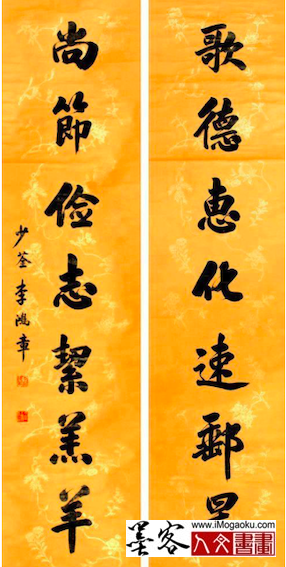 歌德惠化速郵
尚節儉志潔羔羊
少荃李鴻章
www.iMogaoku.com
墨客
人文書畫